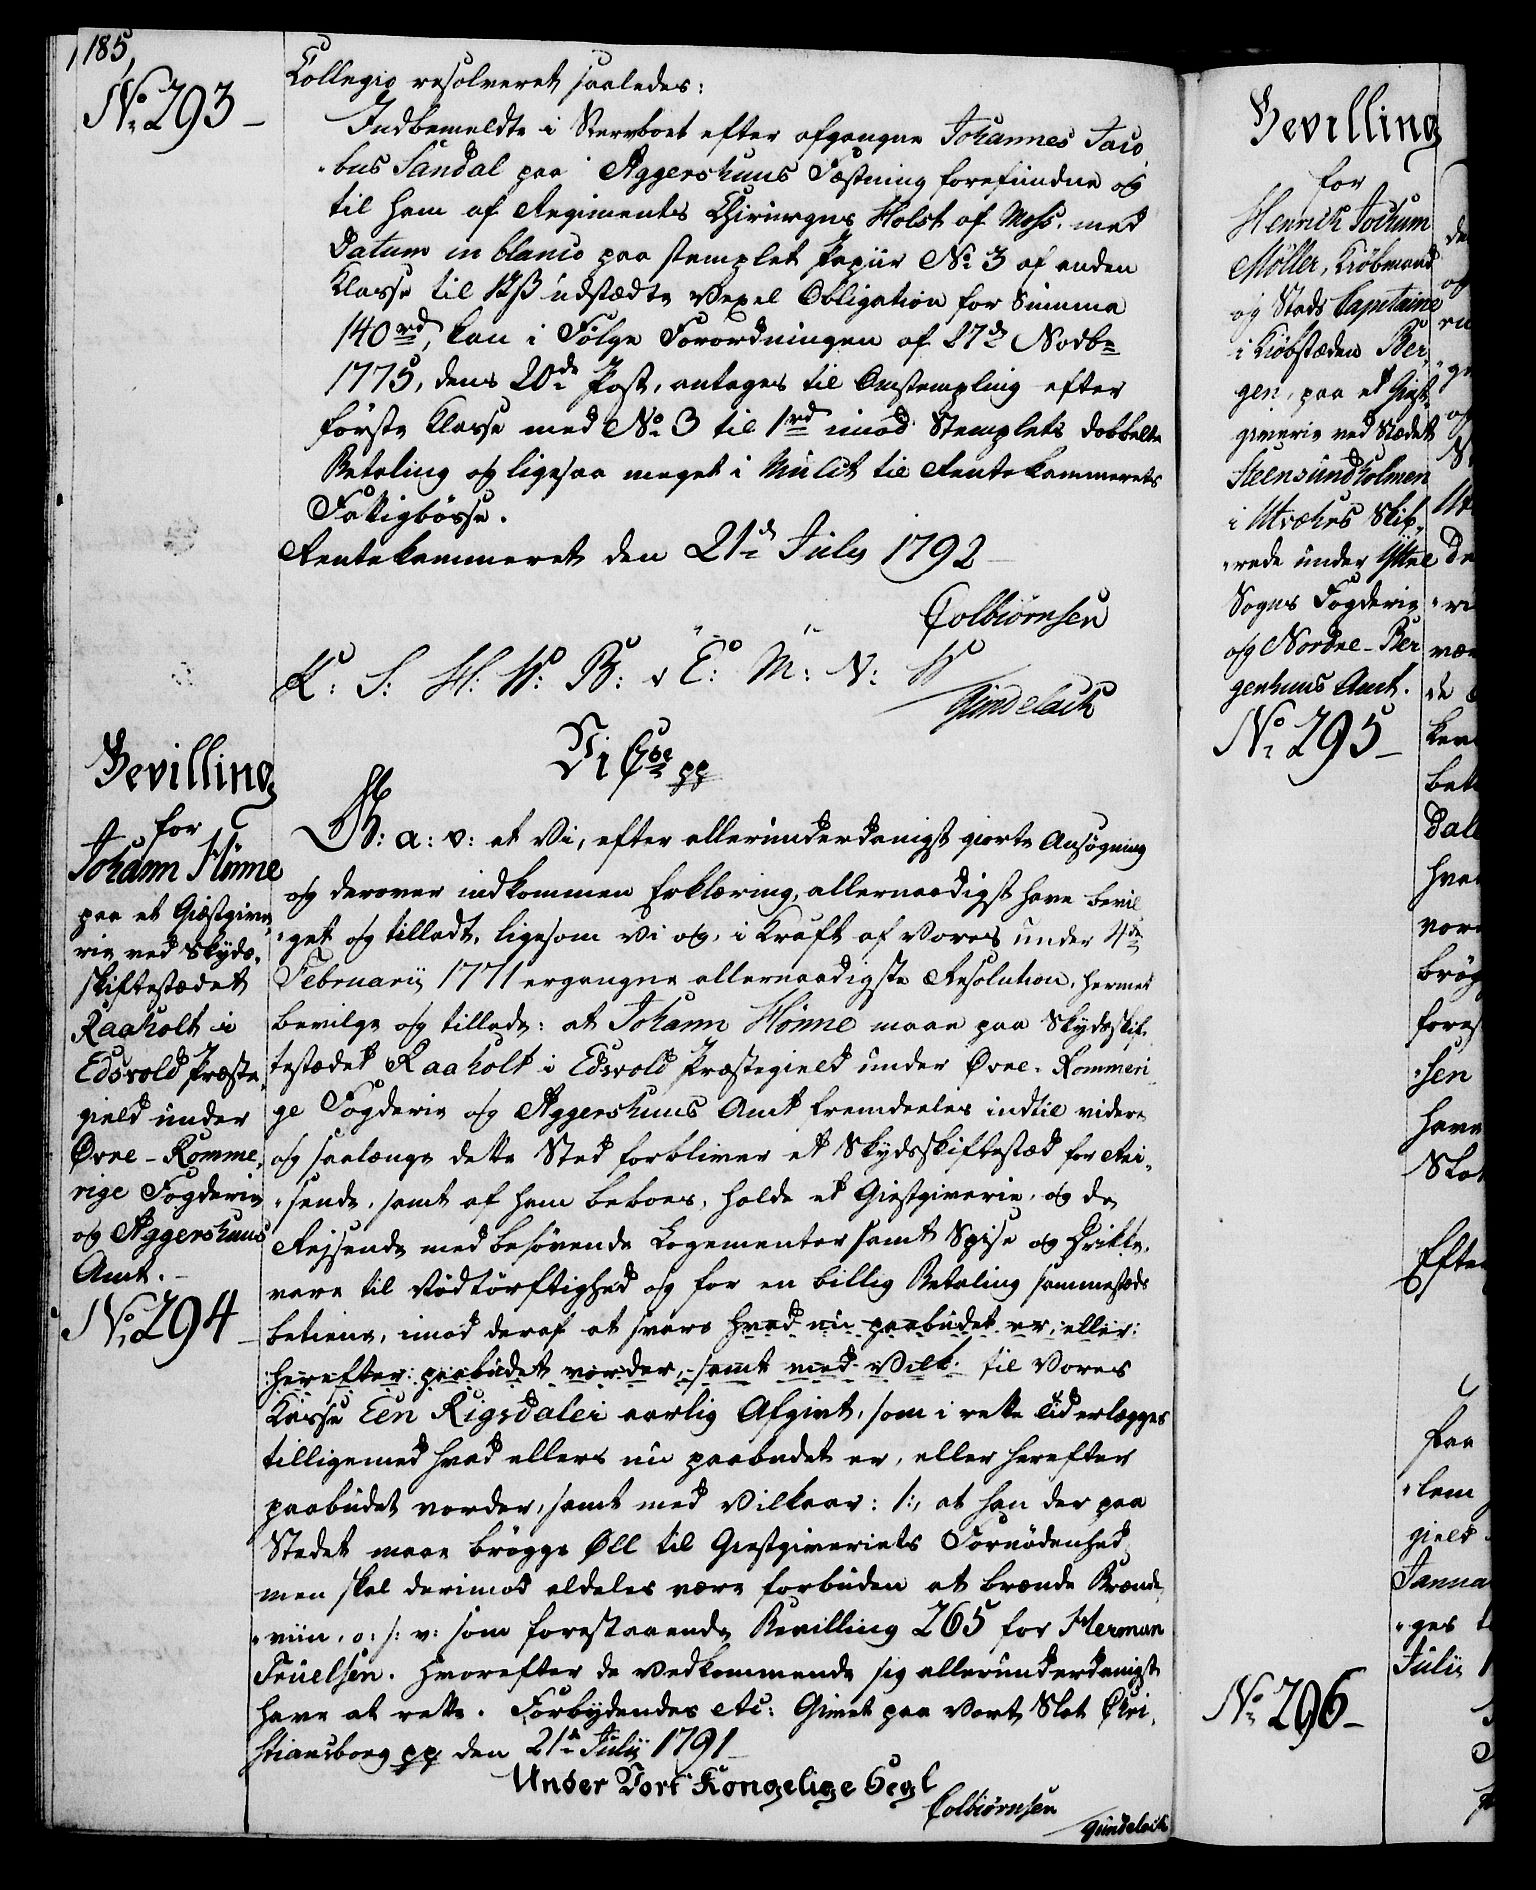 185,
No. 293 –
Collegio resolveret saaledes:
Indbemeldte i Stervboet efter afgangne Johannes Jaco
„bus Sandal paa Aggershuus Fæstning forefundne og
til ham af Regiments Chirurgus Holst af Moss. med
Datum in blanco paa stemplet Papiir No. 3 af anden
Klasse til 12 ß udstædte Vexel Obligation for Summa
140 rd, kan i Følge Forordningen af 27de Novbr
1775, dens 20de Post, antages til Omstempling efter
første Klasse med No. 3 til 1 rd imod Stemplets dobbelte
Betaling og ligesaa meget i Mulct til Rentekammerets
Fattigbøsse.
Rentekammeret den 21de July 1792
Colbiørnsen
K: S: H: W: B: v E: M: N: W
Gundelach
Bevilling
for
Johann Hönne
paa et Giæstgive„
rie ved Skyds„
skiftestædet
Raaholt i
Edsvold Præste„
gield under
Øvre-Romme„
rige Fogderie
og Aggershuus
Amt. –
No. 294 –
Vi C7de pp
G: a: v: at Vi, efter allerunderdanigst giorte Ansøgning
og derover indkommen Erklæring, allernaadigst have bevil
„get og tilladt, ligesom Vi og, i Kraft af Vores under 4de
Februarii 1771 ergangne allernaadigste Resolution, hermed
bevilge og tillade: at Johann Hönne maae paa Skydsskif„
testædet Raaholt i Edsvold Præstegield under Øvre-Rommeri„
ge Fogderie og Aggershuus Amt fremdeeles indtil videre
og saalænge dette Sted forbliver et Skydsskiftestæd for Rei„
„sende, samt af ham beboes, holde et Giestgiverie, og de
Rejsende med behøvende Logementer samt Spise og Drikke„
vare til Nødtørftighed og for en billig Betaling sammestæds
betiene, imod deraf at svare hvad nu paabudet er, eller
herefter paabudet vorder, samt med Vilk. til Vores
Kasse Een Rigsdaler aarlig Afgivt, som i rette Tid erlægges
tilligemed hvad ellers nu paabudet er, eller herefter
paabudet vorder, samt med Vilkaar: 1:, at han der paa
Stedet maae brøgge Øll til Giestgiveriets Fornødenhed
men skal derimod aldeles være forbuden at brænde Brænde„
„viin, o: s: v: som forestaaende Bevilling 265 for Herman
Truelsen. Hvorefter de Vedkommende sig allerunderdanigst
have at rette. Forbydendes etc: Givet paa Vort Slot Chri„
stiansborg pp den 21de Julii 1791
Under Vort Kongelige Segl
Colbiørnsen
Gundelach
Bevilling
for
Henrich Jochum
Möller, Kiöbmand
og Stads Capitaine
i Kiøbstæden Ber„
gen, paa et Giest„
giverie ved Stædet
Steensundholmen
i Utvehrs Skib„
„rede under Yttre
Sogns Fogderie
og Nordre-Ber
genhuus Amt.
No. 295 –
No. 296 –